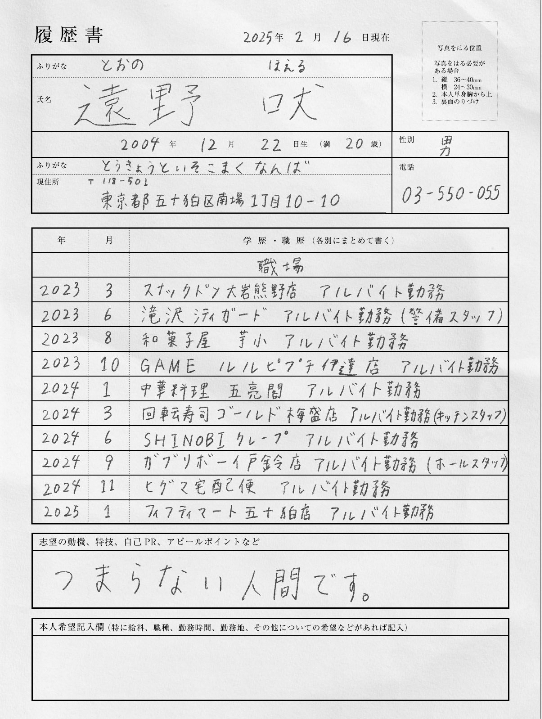 履歴書
2025年 2月 16日現在
写真をはる位置
写真をはる必要が
ある場合
1. 縦 36～40mm
横 24～30mm
2. 本人単身胸から上
3. 裏面のりづけ
ふりがな とおの ほえる
氏名 遠野 吠
2004年 12月 22日生 (満 20歳) 性別 男
ふりがな とうきょうといそこまくなんば
現住所 〒118-501
東京都五十狛区南場1丁目10-10
電話
03-550-055
年 月 学歴・職歴 (各別にまとめて書く)
職場
2023 3 スナックドン大岩熊野店 アルバイト勤務
2023 6 滝沢シティガード アルバイト勤務(警備スタッフ)
2023 8 和菓子屋 芋小 アルバイト勤務
2023 10 GAME ルルピプチ伊達店 アルバイト勤務
2024 1 中華料理 五亮閣 アルバイト勤務
2024 3 回転寿司ゴールド梅盛店 アルバイト勤務(キッチンスタッフ)
2024 6 SHINOBIクレープ アルバイト勤務
2024 9 ガブリボーイ戸鈴店 アルバイト勤務(ホールスタッフ)
2024 11 ヒグマ宅配便 アルバイト勤務
2025 1 フィフティマート五十狛店 アルバイト勤務
志望の動機、特技、自己PR、アピールポイントなど
つまらない人間です。
本人希望記入欄(特に給料、職種、勤務時間、勤務地、その他についての希望などがあれば記入)